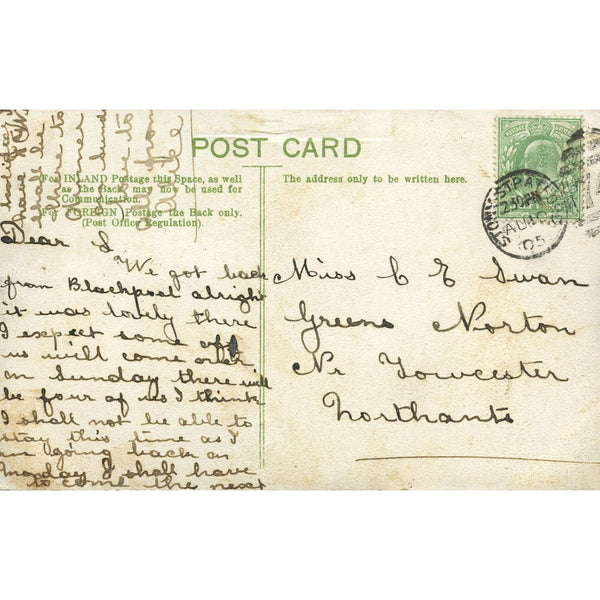 POST CARD
For INLAND Postage this Space, as well
as the Back, may now be used for
Communication.
For FOREIGN Postage the Back only.
(Post Office Regulation).
The address only to be written here.
STONY STRATFORD
AU
05
Miss C E Swan
Greens Norton
Nr Towcester
Northants
Dear S
We got back
from Blackpool alright
it was lovely there
I expect some of
us will come over
on Sunday there will
be four of us I think
I shall not be able to
stay this time as I
am going back on
Monday I shall have
to come the next
holiday I
have
shall be
to
dinner
love to
all from